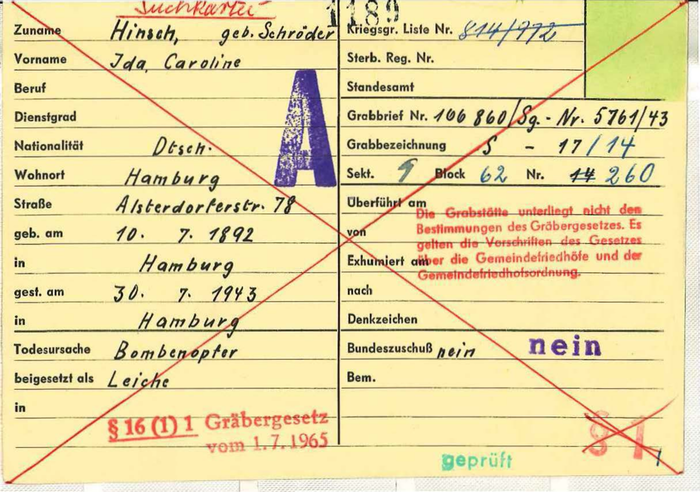 Suchkartei
1189
Zuname Hinsch, geb. Schröder
Vorname Ida, Caroline
Beruf
Dienstgrad
Nationalität Dtsch.
Wohnort Hamburg
Straße Alsterdorferstr. 78
geb. am 10. 7. 1892
in Hamburg
gest. am 30. 7. 1943
in Hamburg
Todesursache Bombenopfer
beigesetzt als Leiche
in
§ 16 (1) 1 Gräbergesetz
vom 1.7.1965
A
Kriegsgr. Liste Nr. 814/772
Sterb. Reg. Nr.
Standesamt
Grabbrief Nr. 106 860/Sg.-Nr. 5761/43
Grabbezeichnung S - 17/14
Sekt. 9 Block 62 Nr. 14 260
Überführt am
von
Exhumiert am
nach
Die Grabstätte unterliegt nicht den
Bestimmungen des Gräbergesetzes. Es
gelten die Vorschriften des Gesetzes
über die Gemeindefriedhöfe und der
Gemeindefriedhofsordnung.
Denkzeichen
Bundeszuschuß nein nein
Bem.
§ 1
geprüft